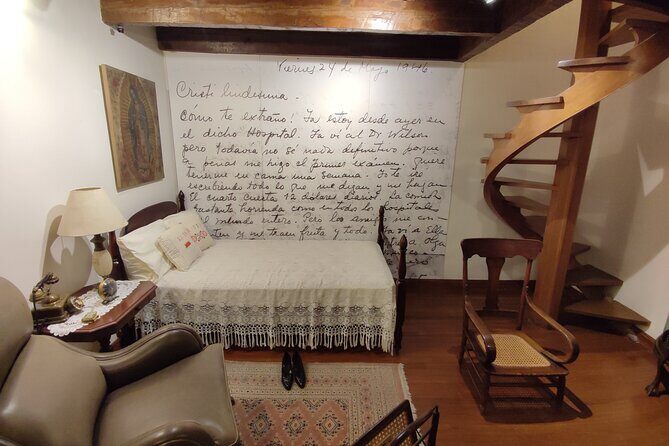 Viernes 24 de Mayo 1946
Cristi lindisima -
cómo te extraño! Ya estoy desde ayer en
el dicho Hospital. Ya vi al Dr. Wilson
pero todavía no sé nada definitivo porque
a penas me hizo el primer exámen. Quiere
tenerme en cama una semana. Yo te iré
escribiendo todo lo que me digan y me hagan
El cuarto cuesta 12 dólares diarios. La comida
bastante horrenda como en todos los hospitales
del mundo entero. Pero los amigos me con
ten y me traen fruta y todo. Ya vi a Ella